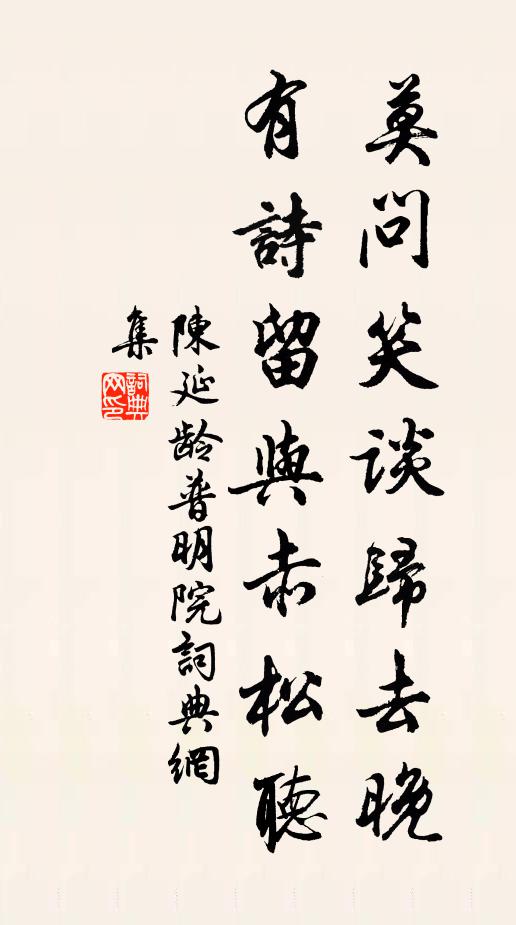 莫問笑談歸去晚
有詩留與赤松聽
陳延龄普明院詞典網
集
詞典
网印